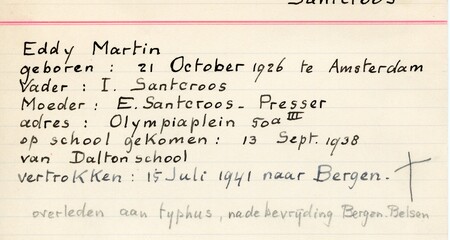 Santcroos
Eddy Martin
geboren : 21 October 1926 te Amsterdam
Vader : I. Santcroos
Moeder : E. Santcroos - Presser
adres : Olympiaplein 50a III
op school gekomen : 13 Sept. 1938
van Dalton school
vertrokken : 15 Juli 1941 naar Bergen.
overleden aan typhus, na de bevrijding Bergen-Belsen